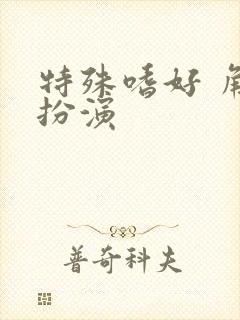 特殊嗜好 角
扮演
普奇科夫